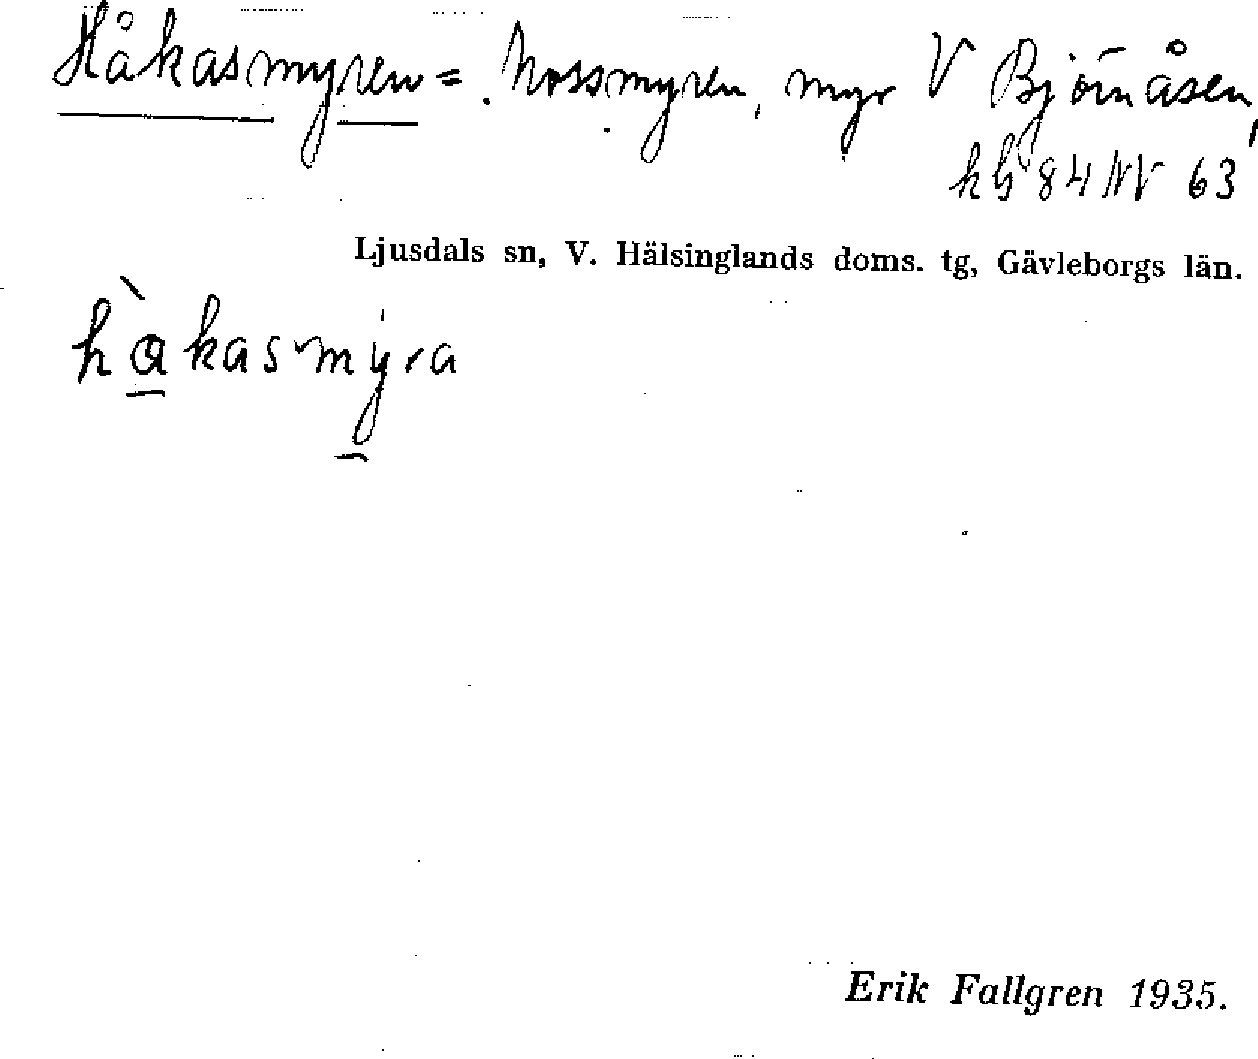 Håkasmyren = Nossmyren, myr V Björnåsen,
kb 84 NV 63
Ljusdals sn, V. Hälsinglands doms. tg, Gävleborgs län.
hàkasmyra
Erik Fallgren 1935.